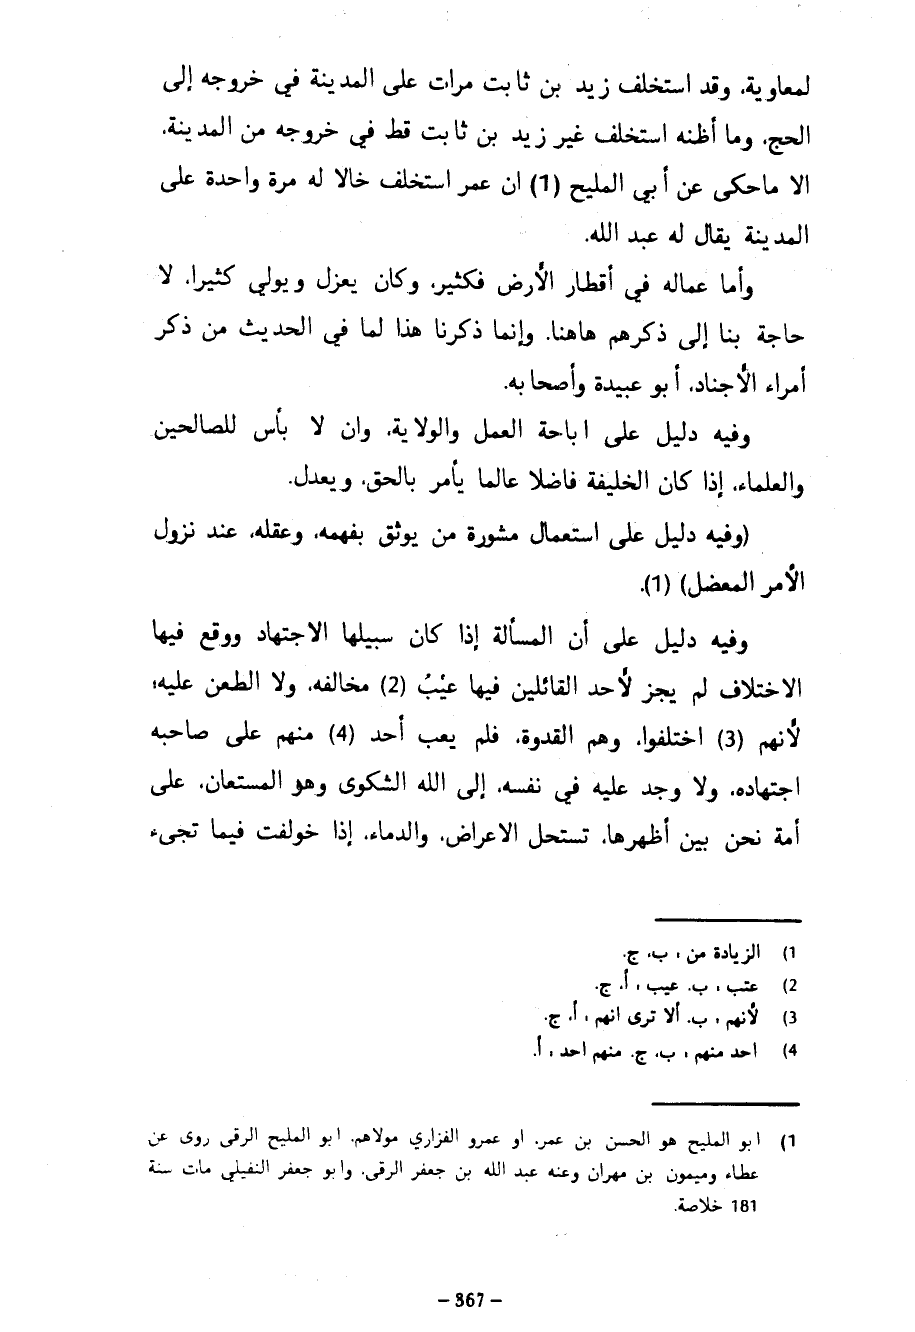 لمعاوية، وقد استخلف زيد بن ثابت مرات على المدينة في خروجه إلى
الحج، وما أظنه استخلف غير زيد بن ثابت قط في خروجه من المدينة،
الا ماحكى عن أبي المليح (1) ان عمر استخلف خالا له مرة واحدة على
المدينة يقال له عبد الله.
وأما عماله في أقطار الأرض فكثير، وكان يعزل ويولي كثيرا، لا
حاجة بنا إلى ذكرهم هاهنا. وإنما ذكرنا هذا لما في الحديث من ذكر
أمراء الأجناد، أبو عبيدة وأصحابه.
وفيه دليل على اباحة العمل والولاية، وان لا بأس للصالحين
والعلماء، إذا كان الخليفة فاضلا عالما يأمر بالحق، ويعدل.
(وفيه دليل على استعمال مشورة من يوثق بفهمه، وعقله، عند نزول
الأمر المعضل) (1).
وفيه دليل على أن المسألة إذا كان سبيلها الاجتهاد ووقع فيها
الاختلاف لم يجز لأحد القائلين فيها عيْبُ (2) مخالفه، ولا الطعن عليه؛
لأنهم (3) اختلفوا، وهم القدوة، فلم يعب أحد (4) منهم على صاحبه
اجتهاده، ولا وجد عليه في نفسه، إلى الله الشكوى وهو المستعان، على
أمة نحن بين أظهرها، تستحل الاعراض، والدماء، إذا خولفت فيما تجيء
1) الزيادة من ، ب، ج.
2) عتب ، ب. عيب ، أ. ج.
3) لأنهم ، ب. ألا ترى انهم ، أ، ج.
4) احد منهم ، ب، ج. منهم احد ، أ.
1) ابو المليح هو الحسن بن عمر، او عمرو الفزاري مولاهم، ابو المليح الرقى روى عن
عطاء وميمون بن مهران وعنه عبد الله بن جعفر الرقى، وابو جعفر النفيلي مات سنة
181 خلاصة.
– 367 –